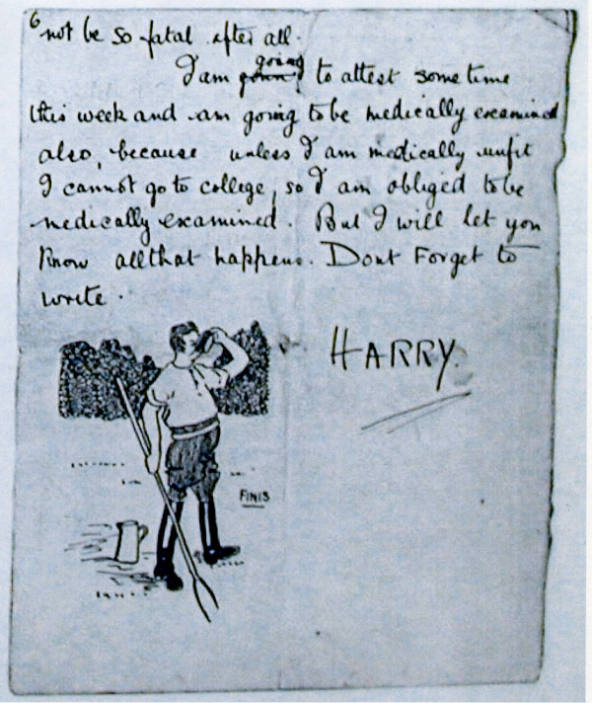 6
not be so fatal after all.
going
I am to attest some time
this week and am going to be medically examined
also, because unless I am medically unfit
I cannot go to college, so I am obliged to be
medically examined. But I will let you
know all that happens. Dont Forget to
write.
HARRY.
FINIS